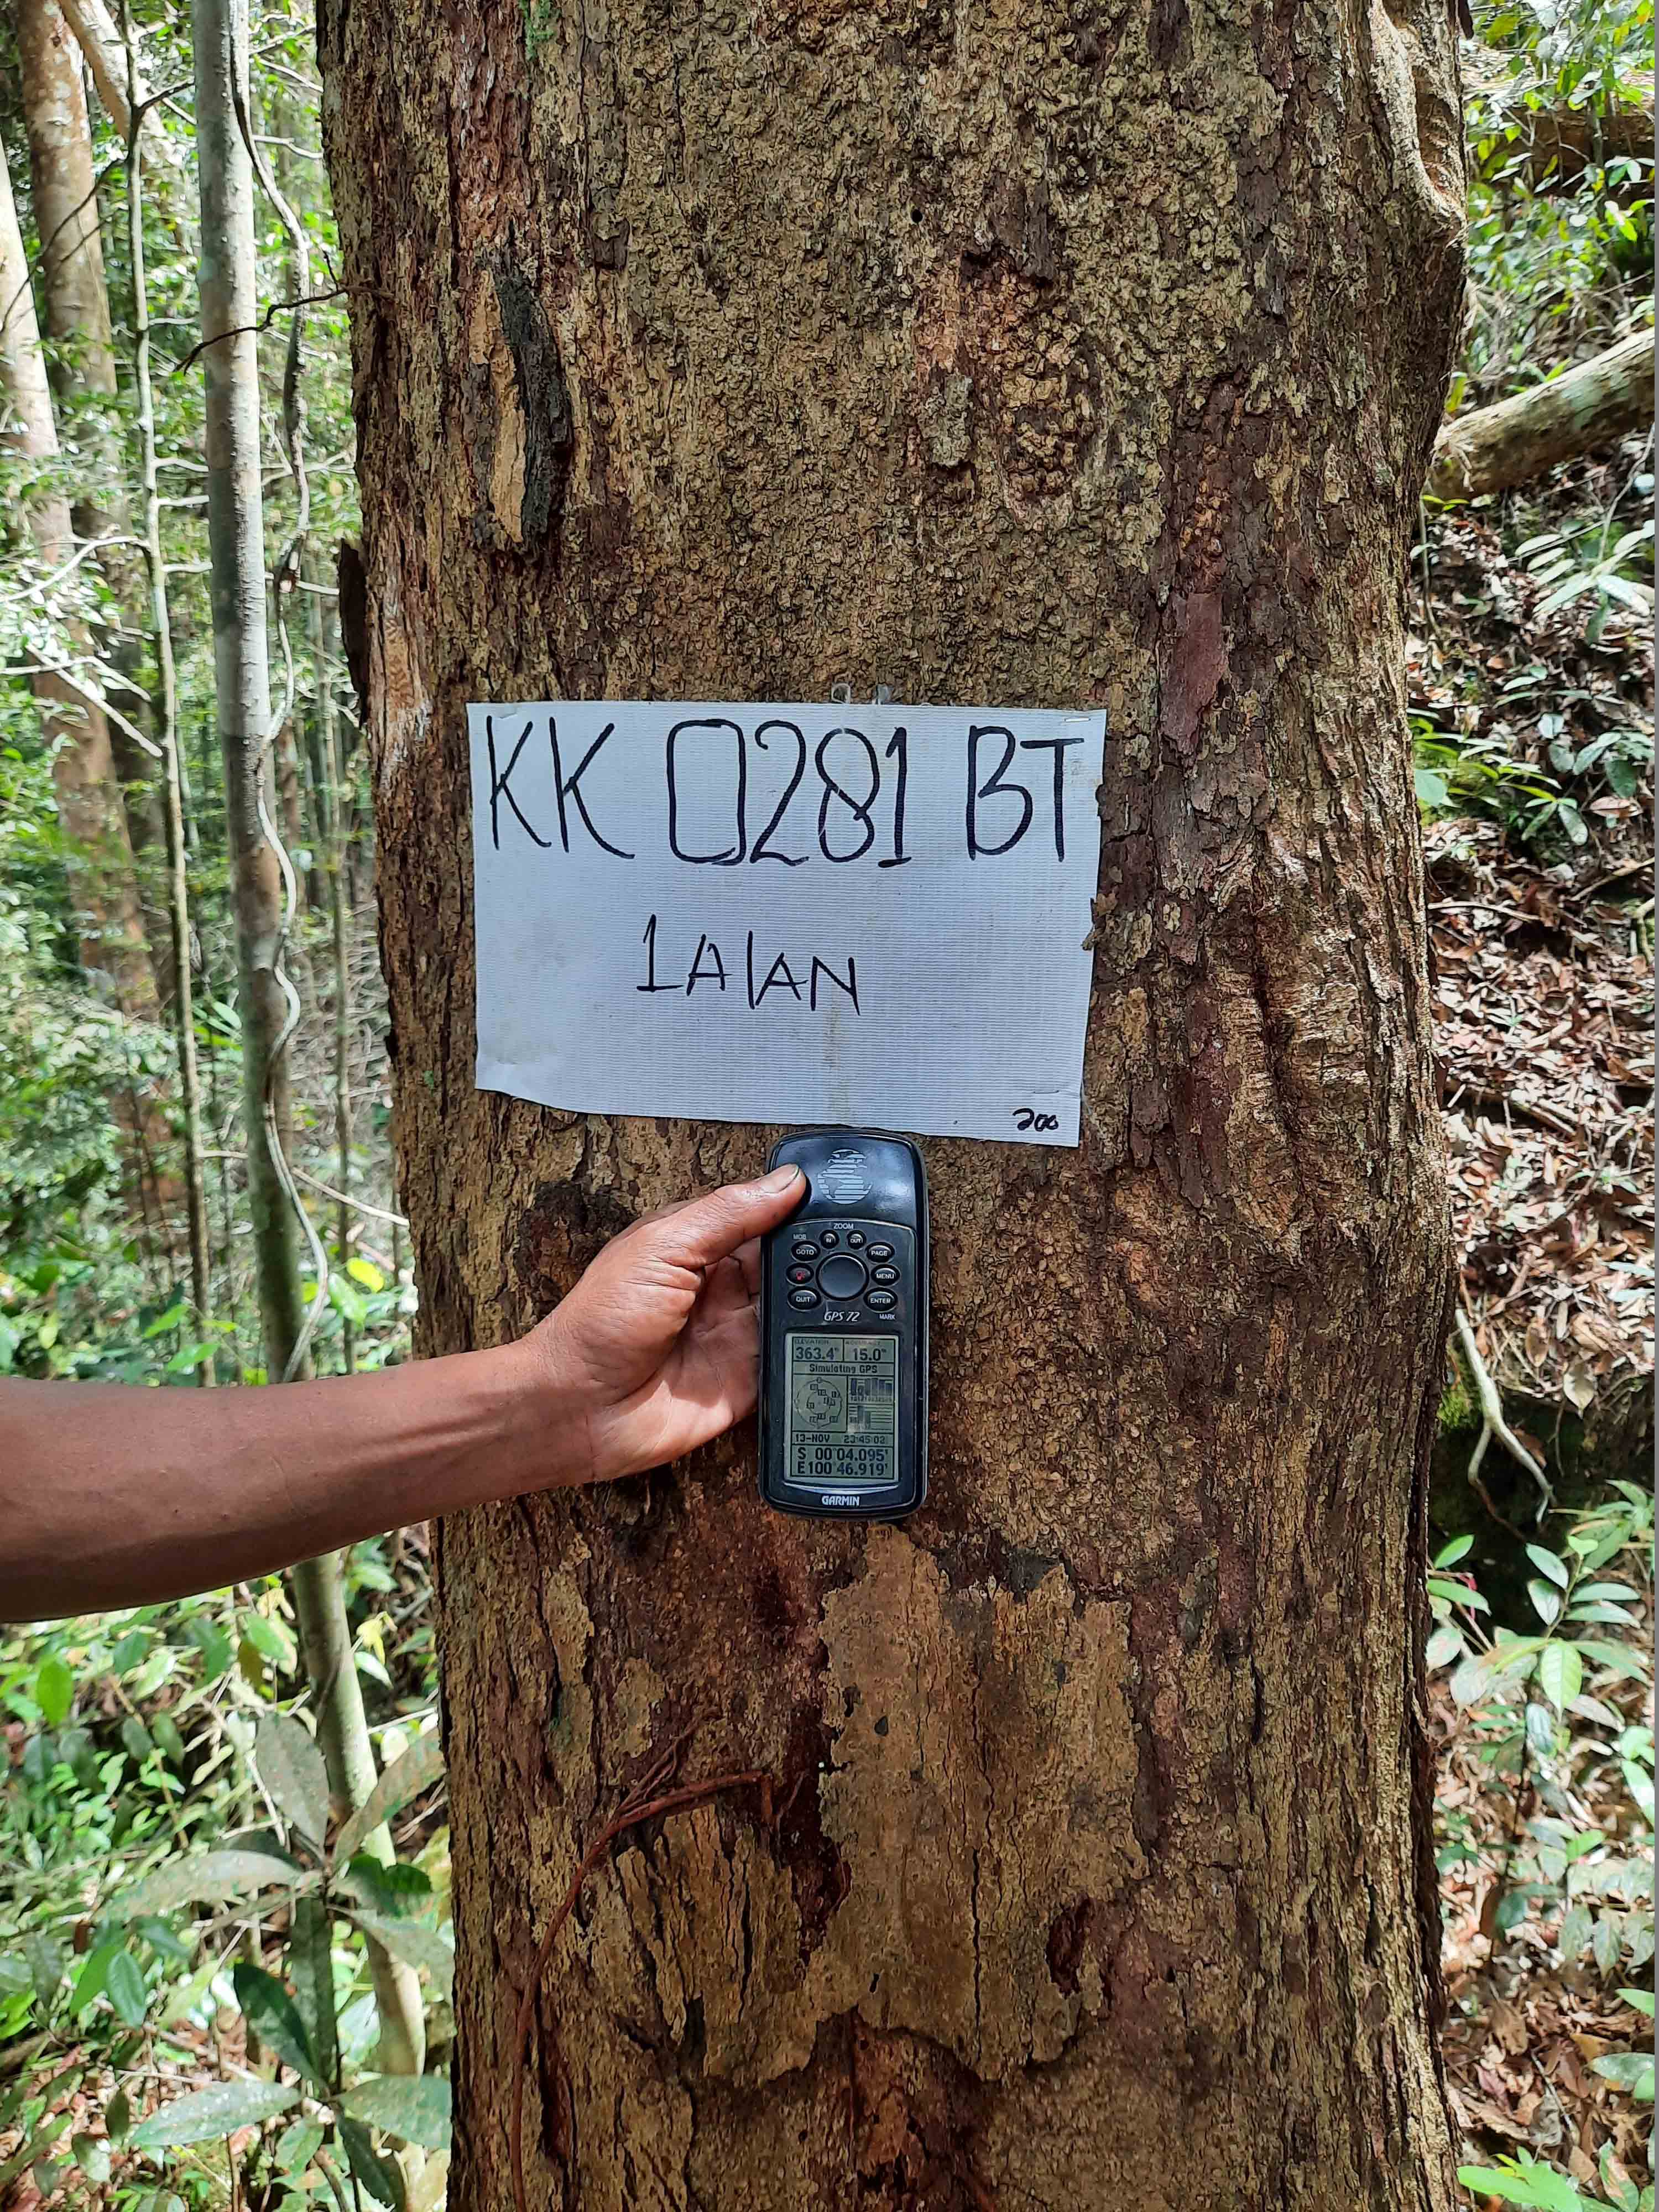 KK 0281 BT
LALAN
200
ZOOM
MOB IN OUT
GOTO PAGE
MENU
QUIT ENTER
GPS 72 MARK
ELEVATION
363.4' 15.0"
Simulating GPS
13-NOV 23:45:02
S 00°04.095'
E100°46.919'
GARMIN